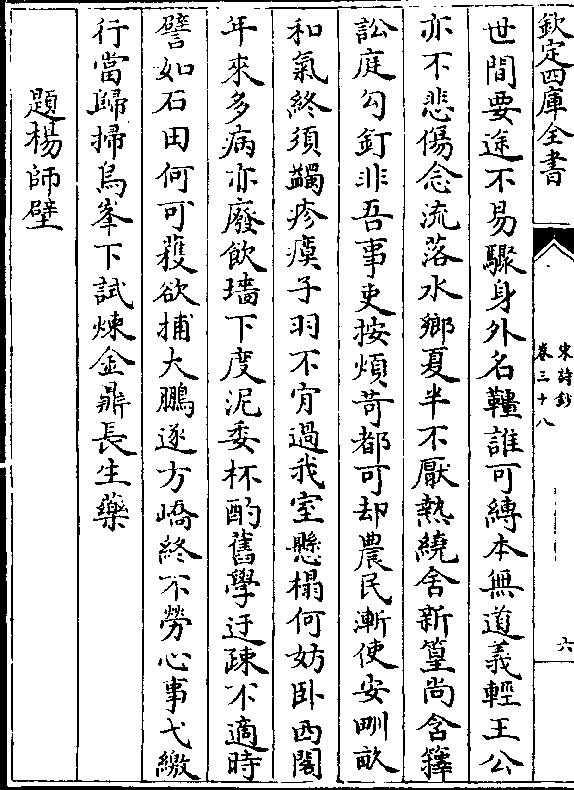 欽定四庫全書
宋詩鈔
卷三十八
六
世間要途不易驟身外名韁誰可縳本無道義輕王公
亦不悲傷念流落水鄉夏半不厭熱繞舍新篁尚含籜
訟庭勾釘非吾事吏按煩苛都可却農民漸使安畎畝
和氣終須蠲疹瘼子羽不肎過我室懸榻何妨卧西閣
年來多病亦廢飲墻下度泥委杯酌舊學迂疎不適時
譬如石田何可穫欲捕大鵬遂方嶠終不勞心事弋繳
行當歸掃烏峯下試煉金鼎長生藥
題楊師壁